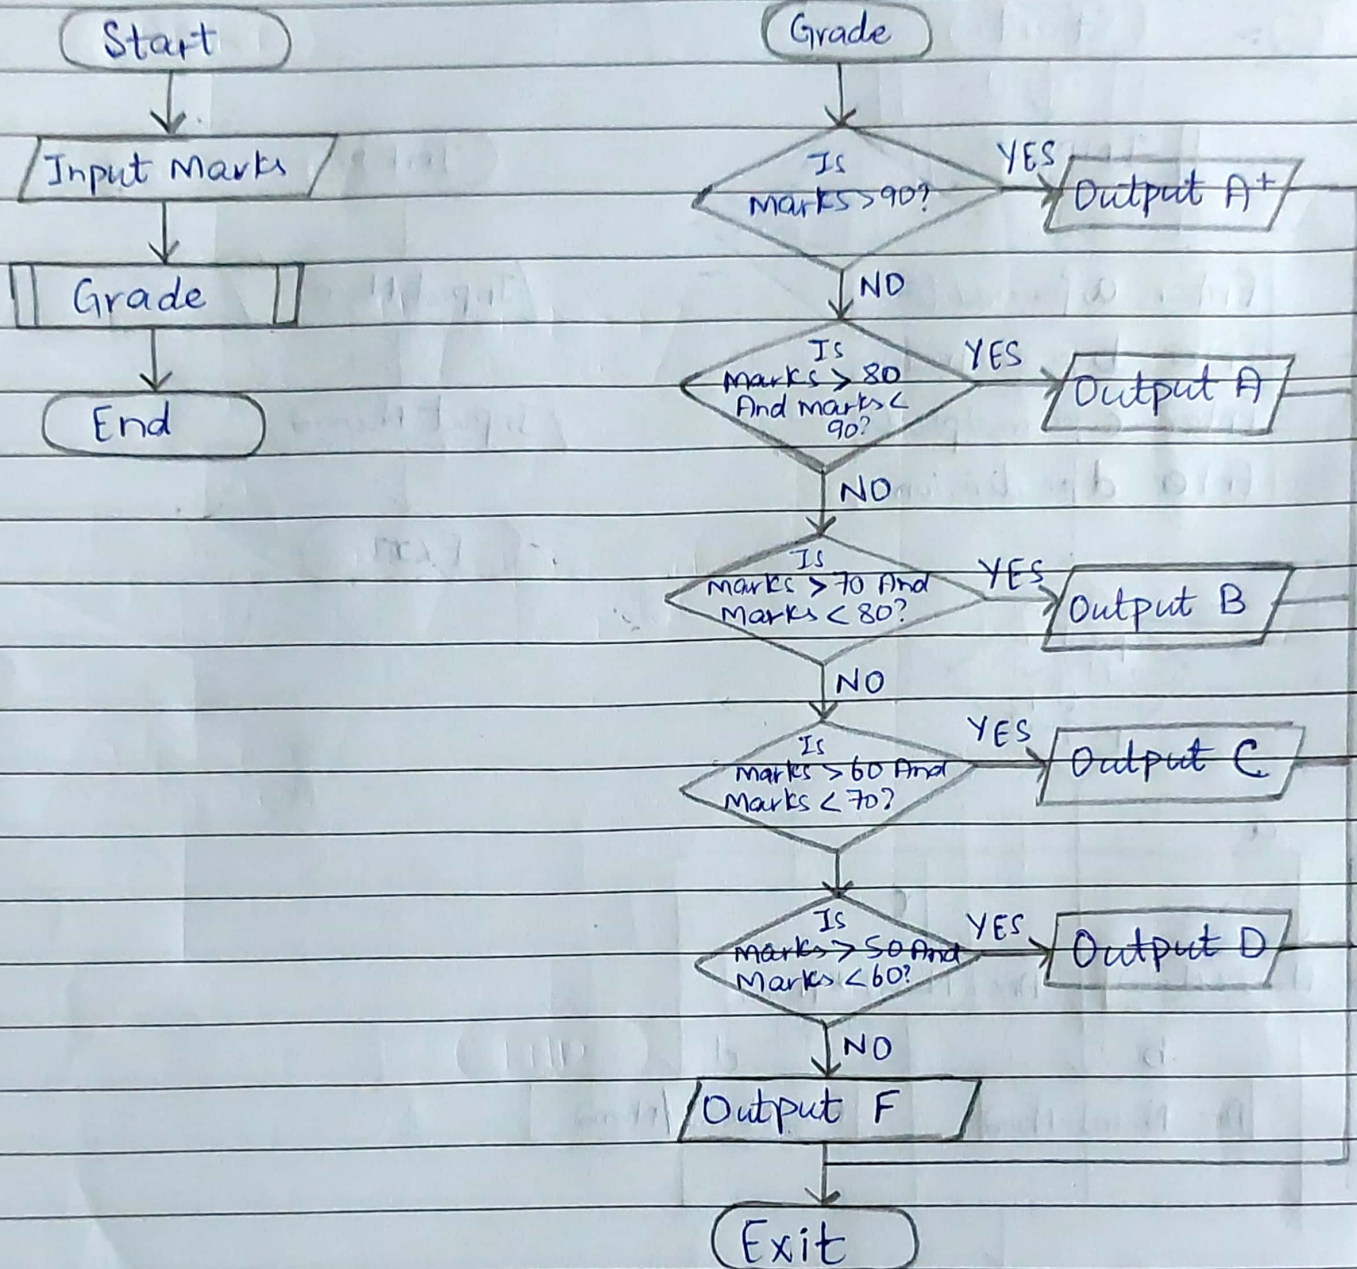 Start
Input Marks
Grade
End
Grade
Is
Marks>90?
YES
Output A+
NO
Is
Marks > 80
And marks <
90?
YES
Output A
NO
Is
Marks > 70 And
Marks < 80?
YES
Output B
NO
Is
Marks >60 And
Marks < 70?
YES
Output C
Is
Marks > 50 And
Marks <60?
YES
Output D
NO
Output F
Exit